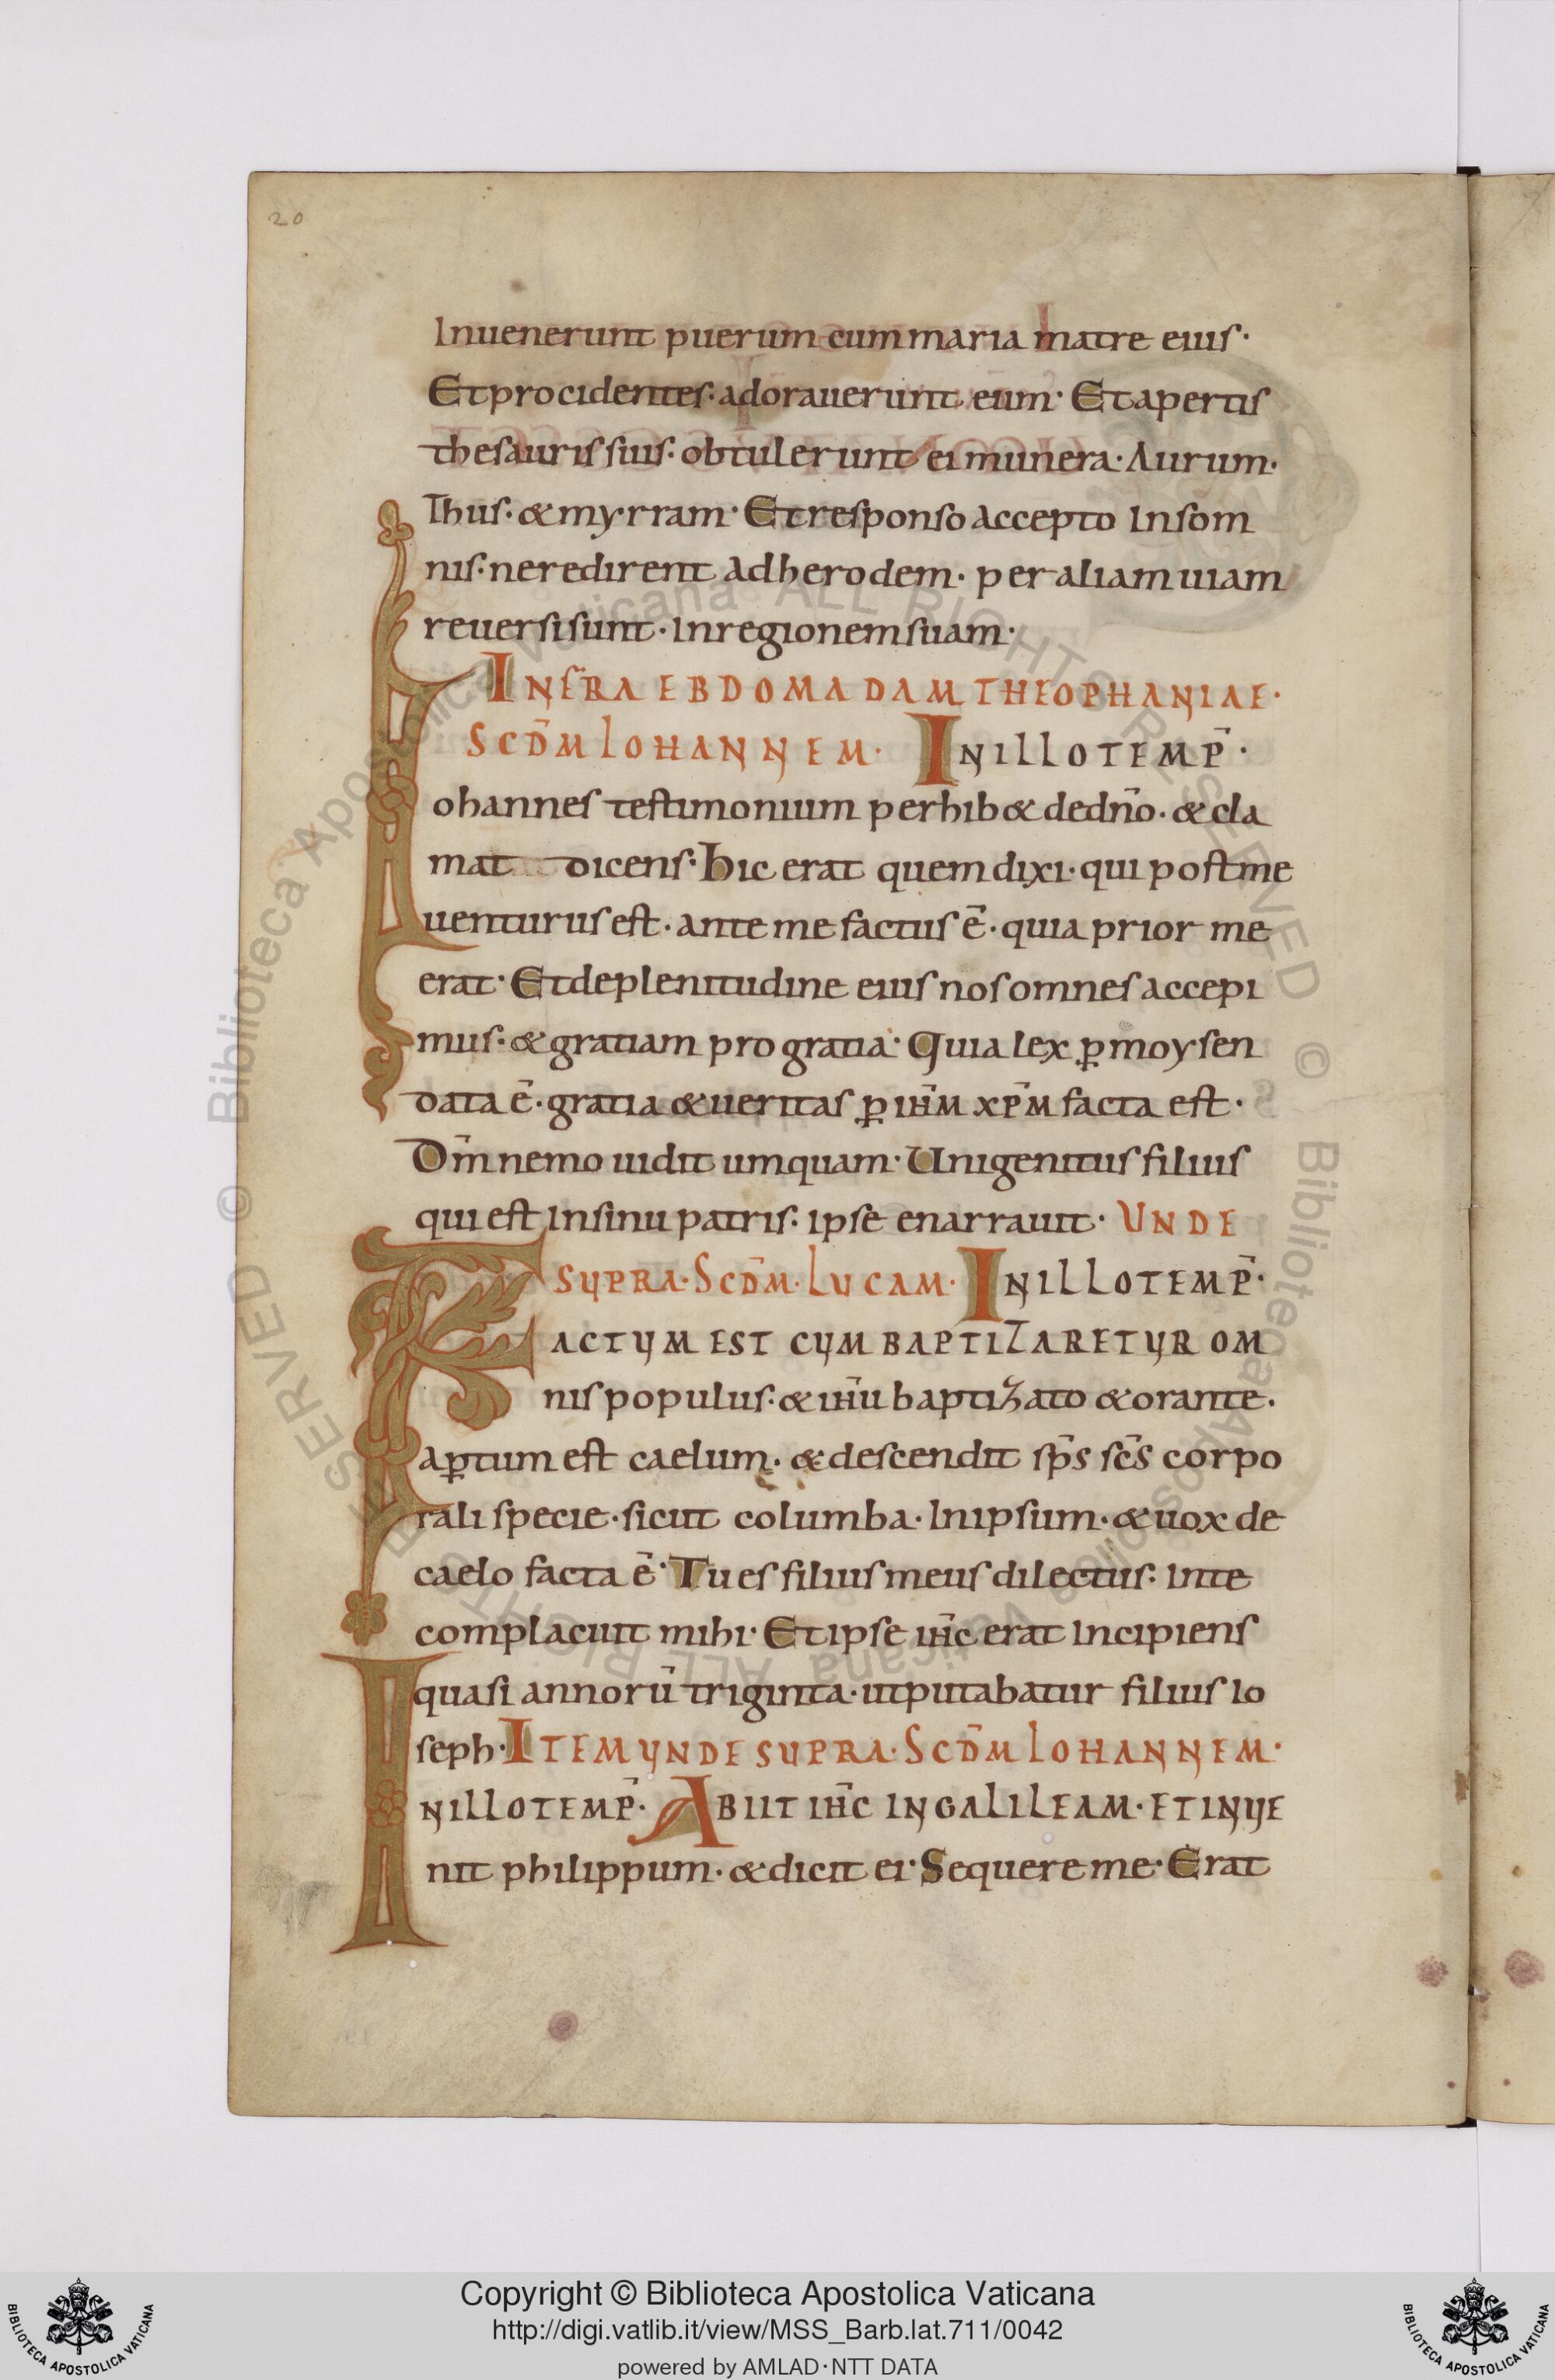 20
Inuenerunt puerum cum maria matre eius·
Et procidentes· adorauerunt eum· Et apertis
thesauris suis· obtulerunt ei munera· Aurum·
Thus· & myrram· Et responso accepto In som
nis· ne redirent ad herodem· per aliam uiam
reuersi sunt· In regionem suam·
INFRA EBDOMADAM THEOPHANIAE·
SCDM̄ IOHANNEM· IN ILLO TEMP̄·
ohannes testimonium perhib& de dn̄o· & cla
mat dicens· hic erat quem dixi· qui post me
uenturus est· ante me factus ē· quia prior me
erat· Et de plenitudine eius nos omnes accepi
mus· & gratiam pro gratia· Quia lex ꝑ moysen
data ē· gratia & ueritas ꝑ ih̄m xp̄m facta est·
Dm̄ nemo uidit umquam· Unigenitus filius
qui est In sinu patris· ipse enarrauit· UNDE
SUPRA· SCDM̄· LUCAM· IN ILLO TEMP̄·
FACTUM EST CUM BAPTIZARETUR OM
nis populus· & ih̄u baptizato & orante·
aꝑtum est caelum· & descendit sp̄s sc̄s corpo
rali specie· sicut columba· In ipsum· & uox de
caelo facta ē· Tu es filius meus dilectus· In te
complacuit mihi· Et ipse ih̄c erat Incipiens
quasi annorū triginta· ut putabatur filius Io
seph· ITEM UNDE SUPRA· SCDM̄ IOHANNEM·
IN ILLO TEMP̄· ABIIT IH̄C IN GALILEAM· ET INUE
nit philippum· & dicit ei· Sequere me· Erat
© Biblioteca Apostolica Vaticana ALL RIGHTS RESERVED © Biblioteca Apostolica Vaticana ALL RIGHTS RESERVED
BIBLIOTECA APOSTOLICA VATICANA
Copyright © Biblioteca Apostolica Vaticana
http://digi.vatlib.it/view/MSS_Barb.lat.711/0042
powered by AMLAD·NTT DATA
BIBLIOTECA APOSTOLICA VATICANA